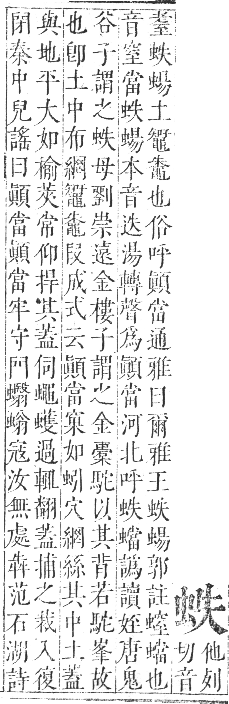 蛈他刻
切音
耋蛈蝪土鼅鼄也俗呼顚當通雅曰爾雅王蛈蝪郭註螲蟷也
音窒當蛈蝪本音迭湯轉聲爲顚當河北呼蛈蟷譌讀姪唐鬼
谷子謂之蛈母劉崇遠金樓子謂之金橐駝以其背若駝峯故
也卽土中布網鼅鼄段成式云顚當窠如蚓穴網絲其中土蓋
與地平大如榆莢常仰捍其蓋伺蠅蠖過輒翻蓋捕之裁入復
閉秦中兒謠曰顚當顚當牢守門蠮螉寇汝無處犇范石湖詩